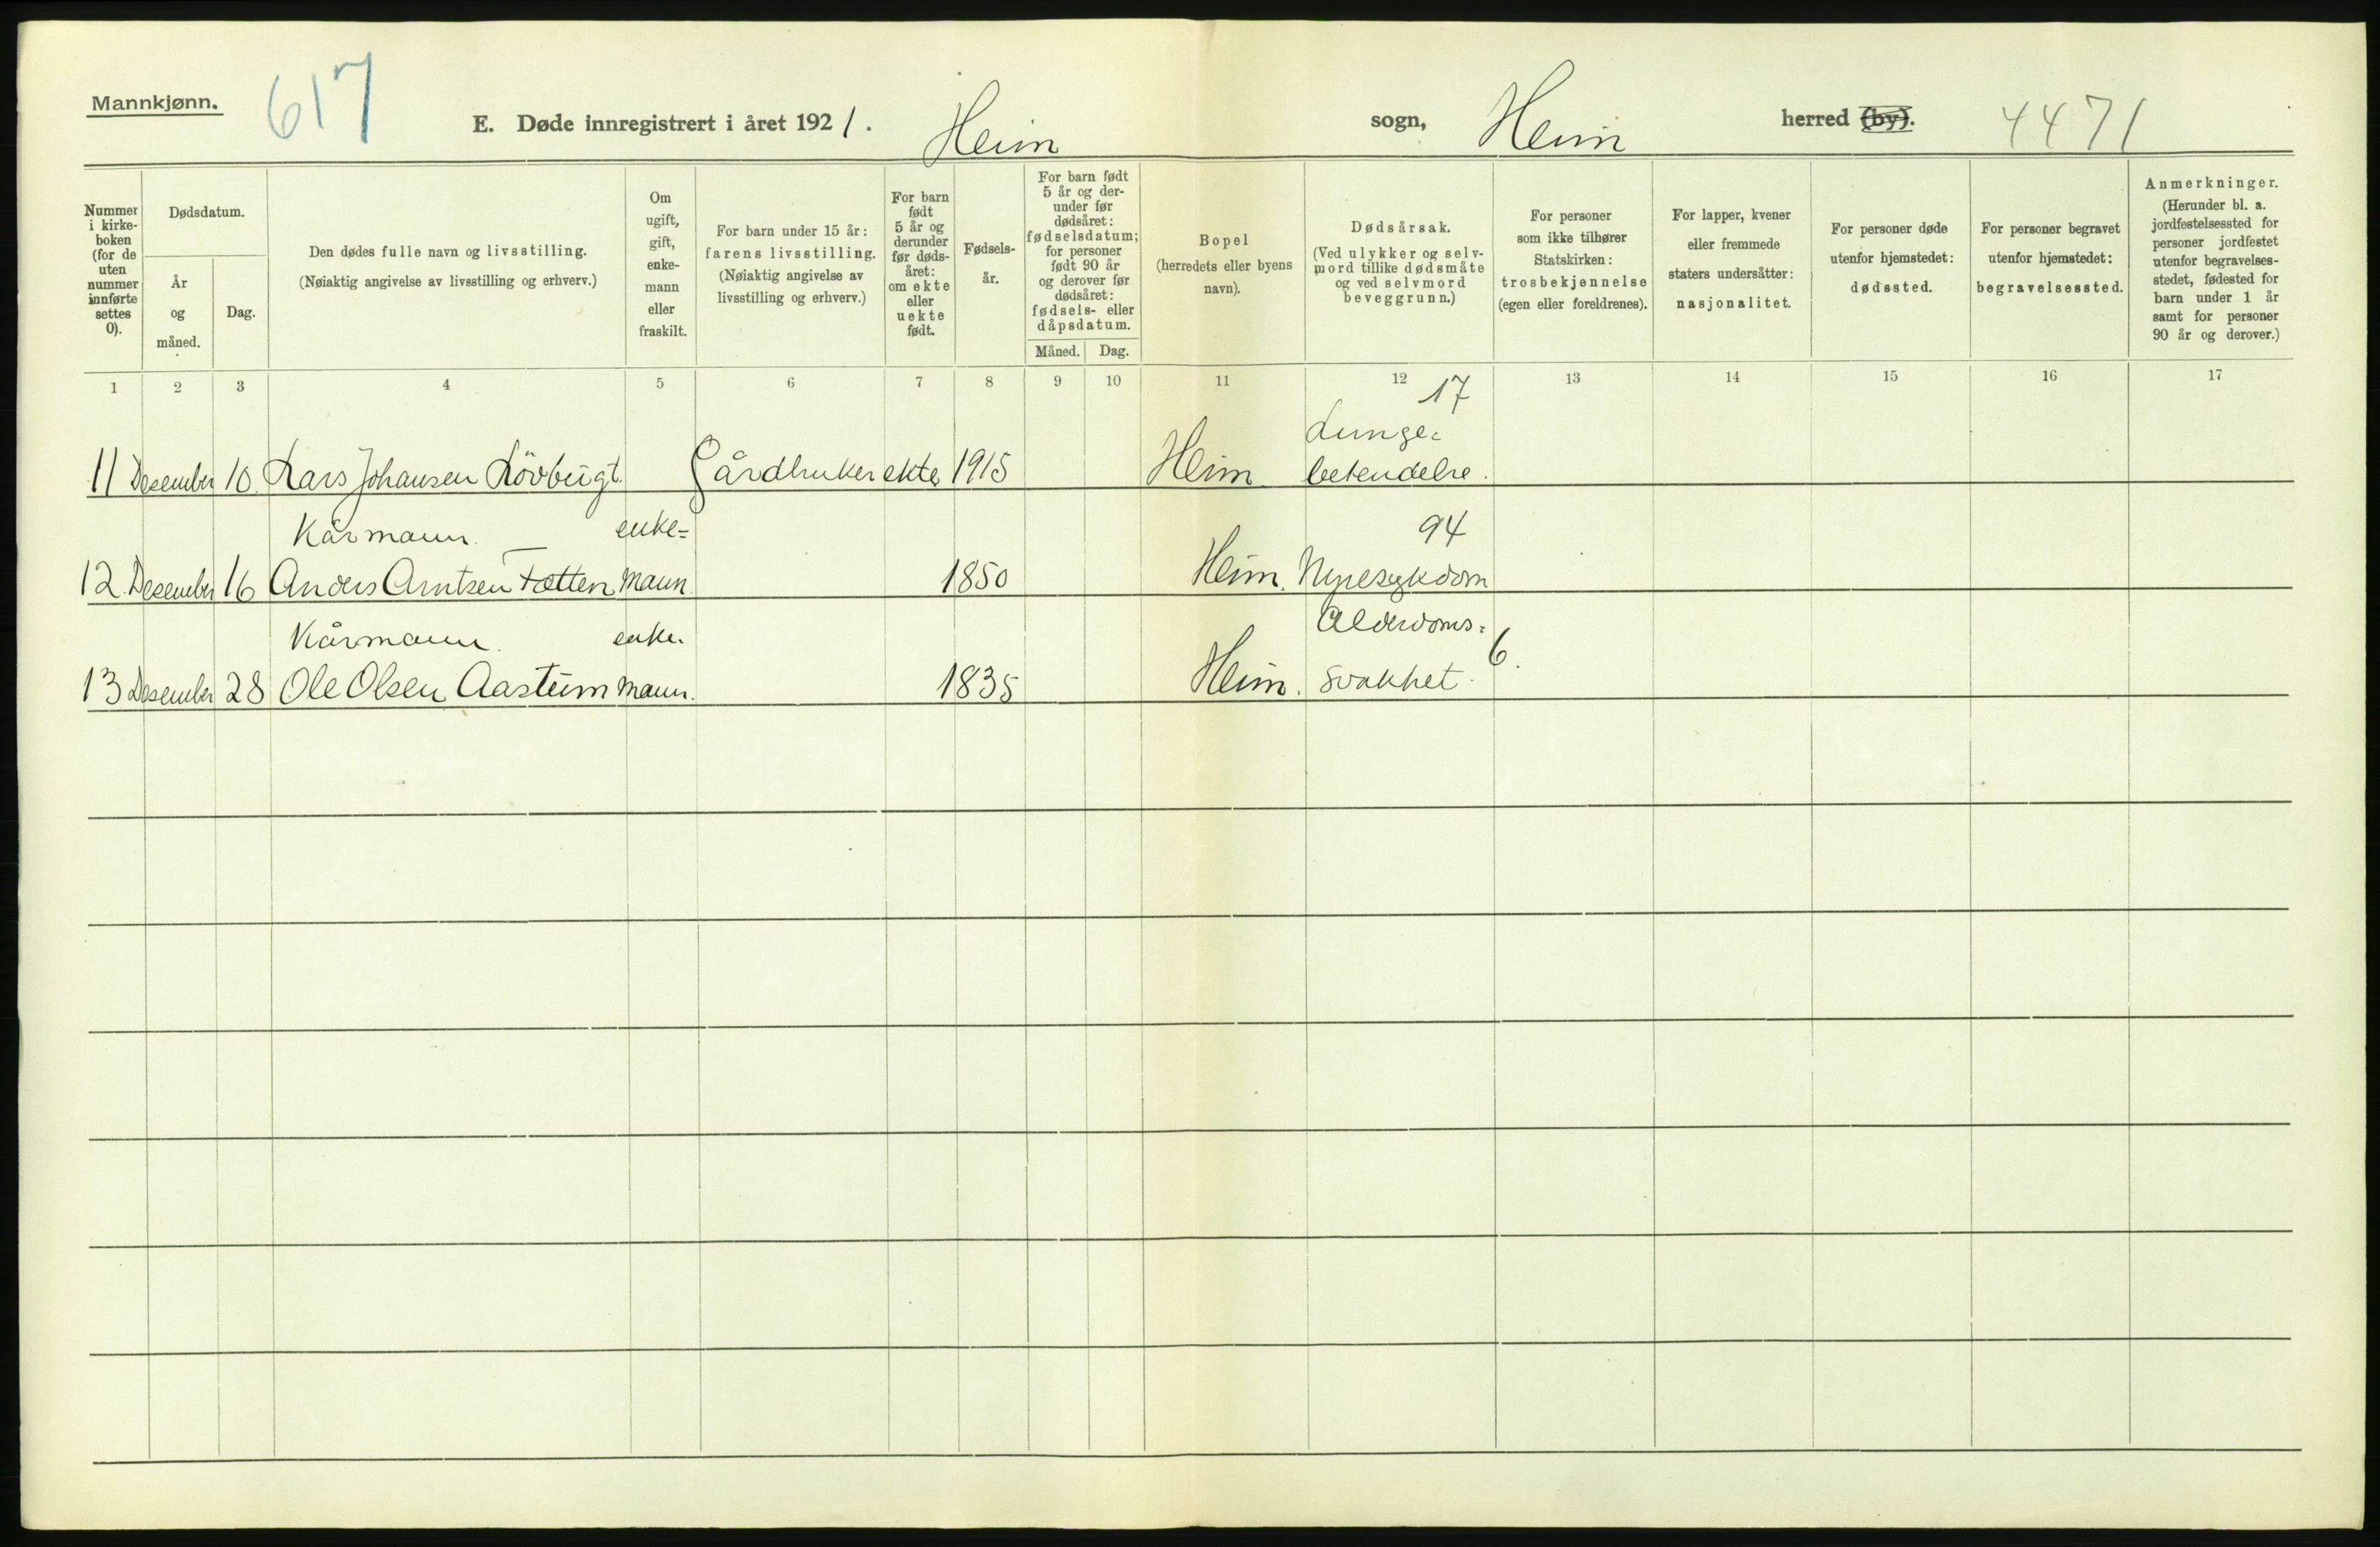 Mannkjønn.
617
E. Døde innregistrert i året 1921. Heim sogn, Heim herred (by). 4471
Nummer i kirke- boken (for de uten nummer innførte settes 0).
Dødsdatum.
År og måned.
Dag.
Den dødes fulle navn og livsstilling.
(Nøiaktig angivelse av livsstilling og erhverv.)
Om ugift, gift, enke- mann eller fraskilt.
For barn under 15 år:
farens livsstilling.
(Nøiaktig angivelse av livsstilling og erhverv.)
For barn født 5 år og derunder før døds- året: om ekte eller uekte født.
Fødsels- år.
For barn født 5 år og der- under før dødsåret: fødselsdatum; for personer født 90 år og derover før dødsåret: fødsels- eller dåpsdatum.
Måned. Dag.
Bopel
(herredets eller byens navn).
Dødsårsak.
(Ved ulykker og selv- mord tillike dødsmåte og ved selvmord beveggrunn.)
For personer som ikke tilhører Statskirken: trosbekjennelse (egen eller foreldrenes).
For lapper, kvener eller fremmede staters undersåtter: nasjonalitet.
For personer døde utenfor hjemstedet: dødssted.
For personer begravet utenfor hjemstedet: begravelsessted.
Anmerkninger.
(Herunder bl. a. jordfestelsessted for personer jordfestet utenfor begravelses- stedet, fødested for barn under 1 år samt for personer 90 år og derover.)
1 2 3 4 5 6 7 8 9 10 11 12 13 14 15 16 17
17
Lunge=
11 Desember 10. Lars Johansen Lövbugt. Gårdbruker ekte 1915 Heim betendelse.
Kårmann. enke= 94
12. Desember 16 Anders Arntsen Tætten mann. 1850 Heim. Nyresykdom
Kårmann. enke- Alderdoms=
13 Desember 28 Ole Olsen Aastum mann. 1835 Heim. svakhet. 6.